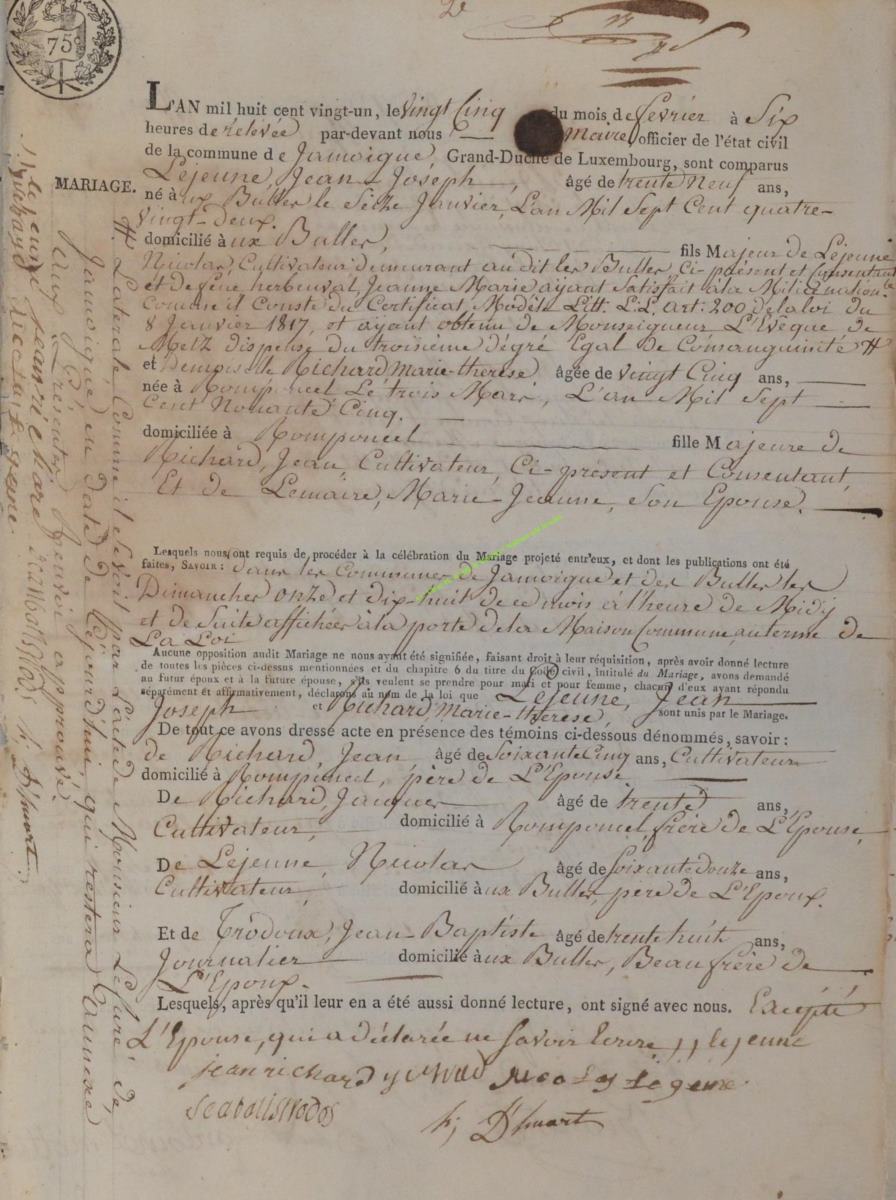 2e
75c
L'AN mil huit cent vingt-un, le Vingt Cinq du mois de fevrier à Six
heures de relevée par-devant nous Maire, officier de l'état civil
de la commune de Jamoigue, Grand-Duché de Luxembourg, sont comparus
MARIAGE.
Lejeune, Jean-Joseph, âgé de trente Neuf ans,
né à ux Bulles le Seize Janvier, L'an Mil Sept Cent quatre-
Vingt-Deux.
domicilié à ux Bulles, fils Majeur de Lejeune
Nicolas, Cultivateur demeurant au dit les Bulles, Ci-présent et Consentant
et de feue herbeuval Jeanne Marie ayant Satisfait à la Milice nationle
Comme il Conste du Certificat, Modèle Litt. L.L. art: 200 de la loi du
8 Janvier 1817, et ayant obtenu de Monseigneur L'Evêque de
Metz dispense du troisième dégré Egal de Consanguinité #
et Demoiselle Richard Marie-therese âgée de Vingt Cinq ans,
née à Romponcel Le trois Mars, L'an Mil Sept
Cent Nonante Cinq.
domiciliée à Romponcel fille Majeure de
Richard, Jean Cultivateur, Ci-présent et Consentant,
Et de Lemaire, Marie-Jeanne, son Epouse.
Lesquels nous ont requis de procéder à la célébration du Mariage projeté entr'eux, et dont les publications ont été
faites, SAVOIR: dans les Communes de Jamoigue et des Bulles les
Dimanches onze et dix-huit de ce mois à l'heure de Midy
et de Suite affichées à la porte de la Maison Commune au terme de
La Loi
Aucune opposition audit Mariage ne nous ayant été signifiée, faisant droit à leur réquisition, après avoir donné lecture
de toutes les pièces ci-dessus mentionnées et du chapitre 6 du titre du Code civil, intitulé du Mariage, avons demandé
au futur époux et à la future épouse, s'ils veulent se prendre pour mari et pour femme, chacun d'eux ayant répondu
séparément et affirmativement, déclarons au nom de la loi que Lejeune, Jean
Joseph et Richard Marie-therese, sont unis par le Mariage.
De tout ce avons dressé acte en présence des témoins ci-dessous dénommés, savoir:
de Richard, Jean âgé de Soixante Cinq ans, Cultivateur
domicilié à Romponcel, père de L'Epouse
De Richard, Jacques âgé de trente ans,
Cultivateur, domicilié à Romponcel, frère de L'Epouse,
De Lejeune, Nicolas âgé de Soixante douze ans,
Cultivateur, domicilié à ux Bulles, père de L'Epoux.
Et de Trodoux, Jean-Baptiste âgé de trente huit ans,
Journalier domicilié à ux Bulles, Beau frère de
L'Epoux.
Lesquels, après qu'il leur en a été aussi donné lecture, ont signé avec nous. Excepté
L'Epouse, qui a déclarée ne Savoir Ecrire, jj lejeune
jean richard nicolas legene
h; D'huart
# Laterale Comme il se voit par L'acte de Monsieur Le Curé de
Jamoigue en date de Cejourd'hui qui restera annexé
aux présentes, Renvoi approuvé.
jj lejeune jean richard
nicolas legene
h; D'huart